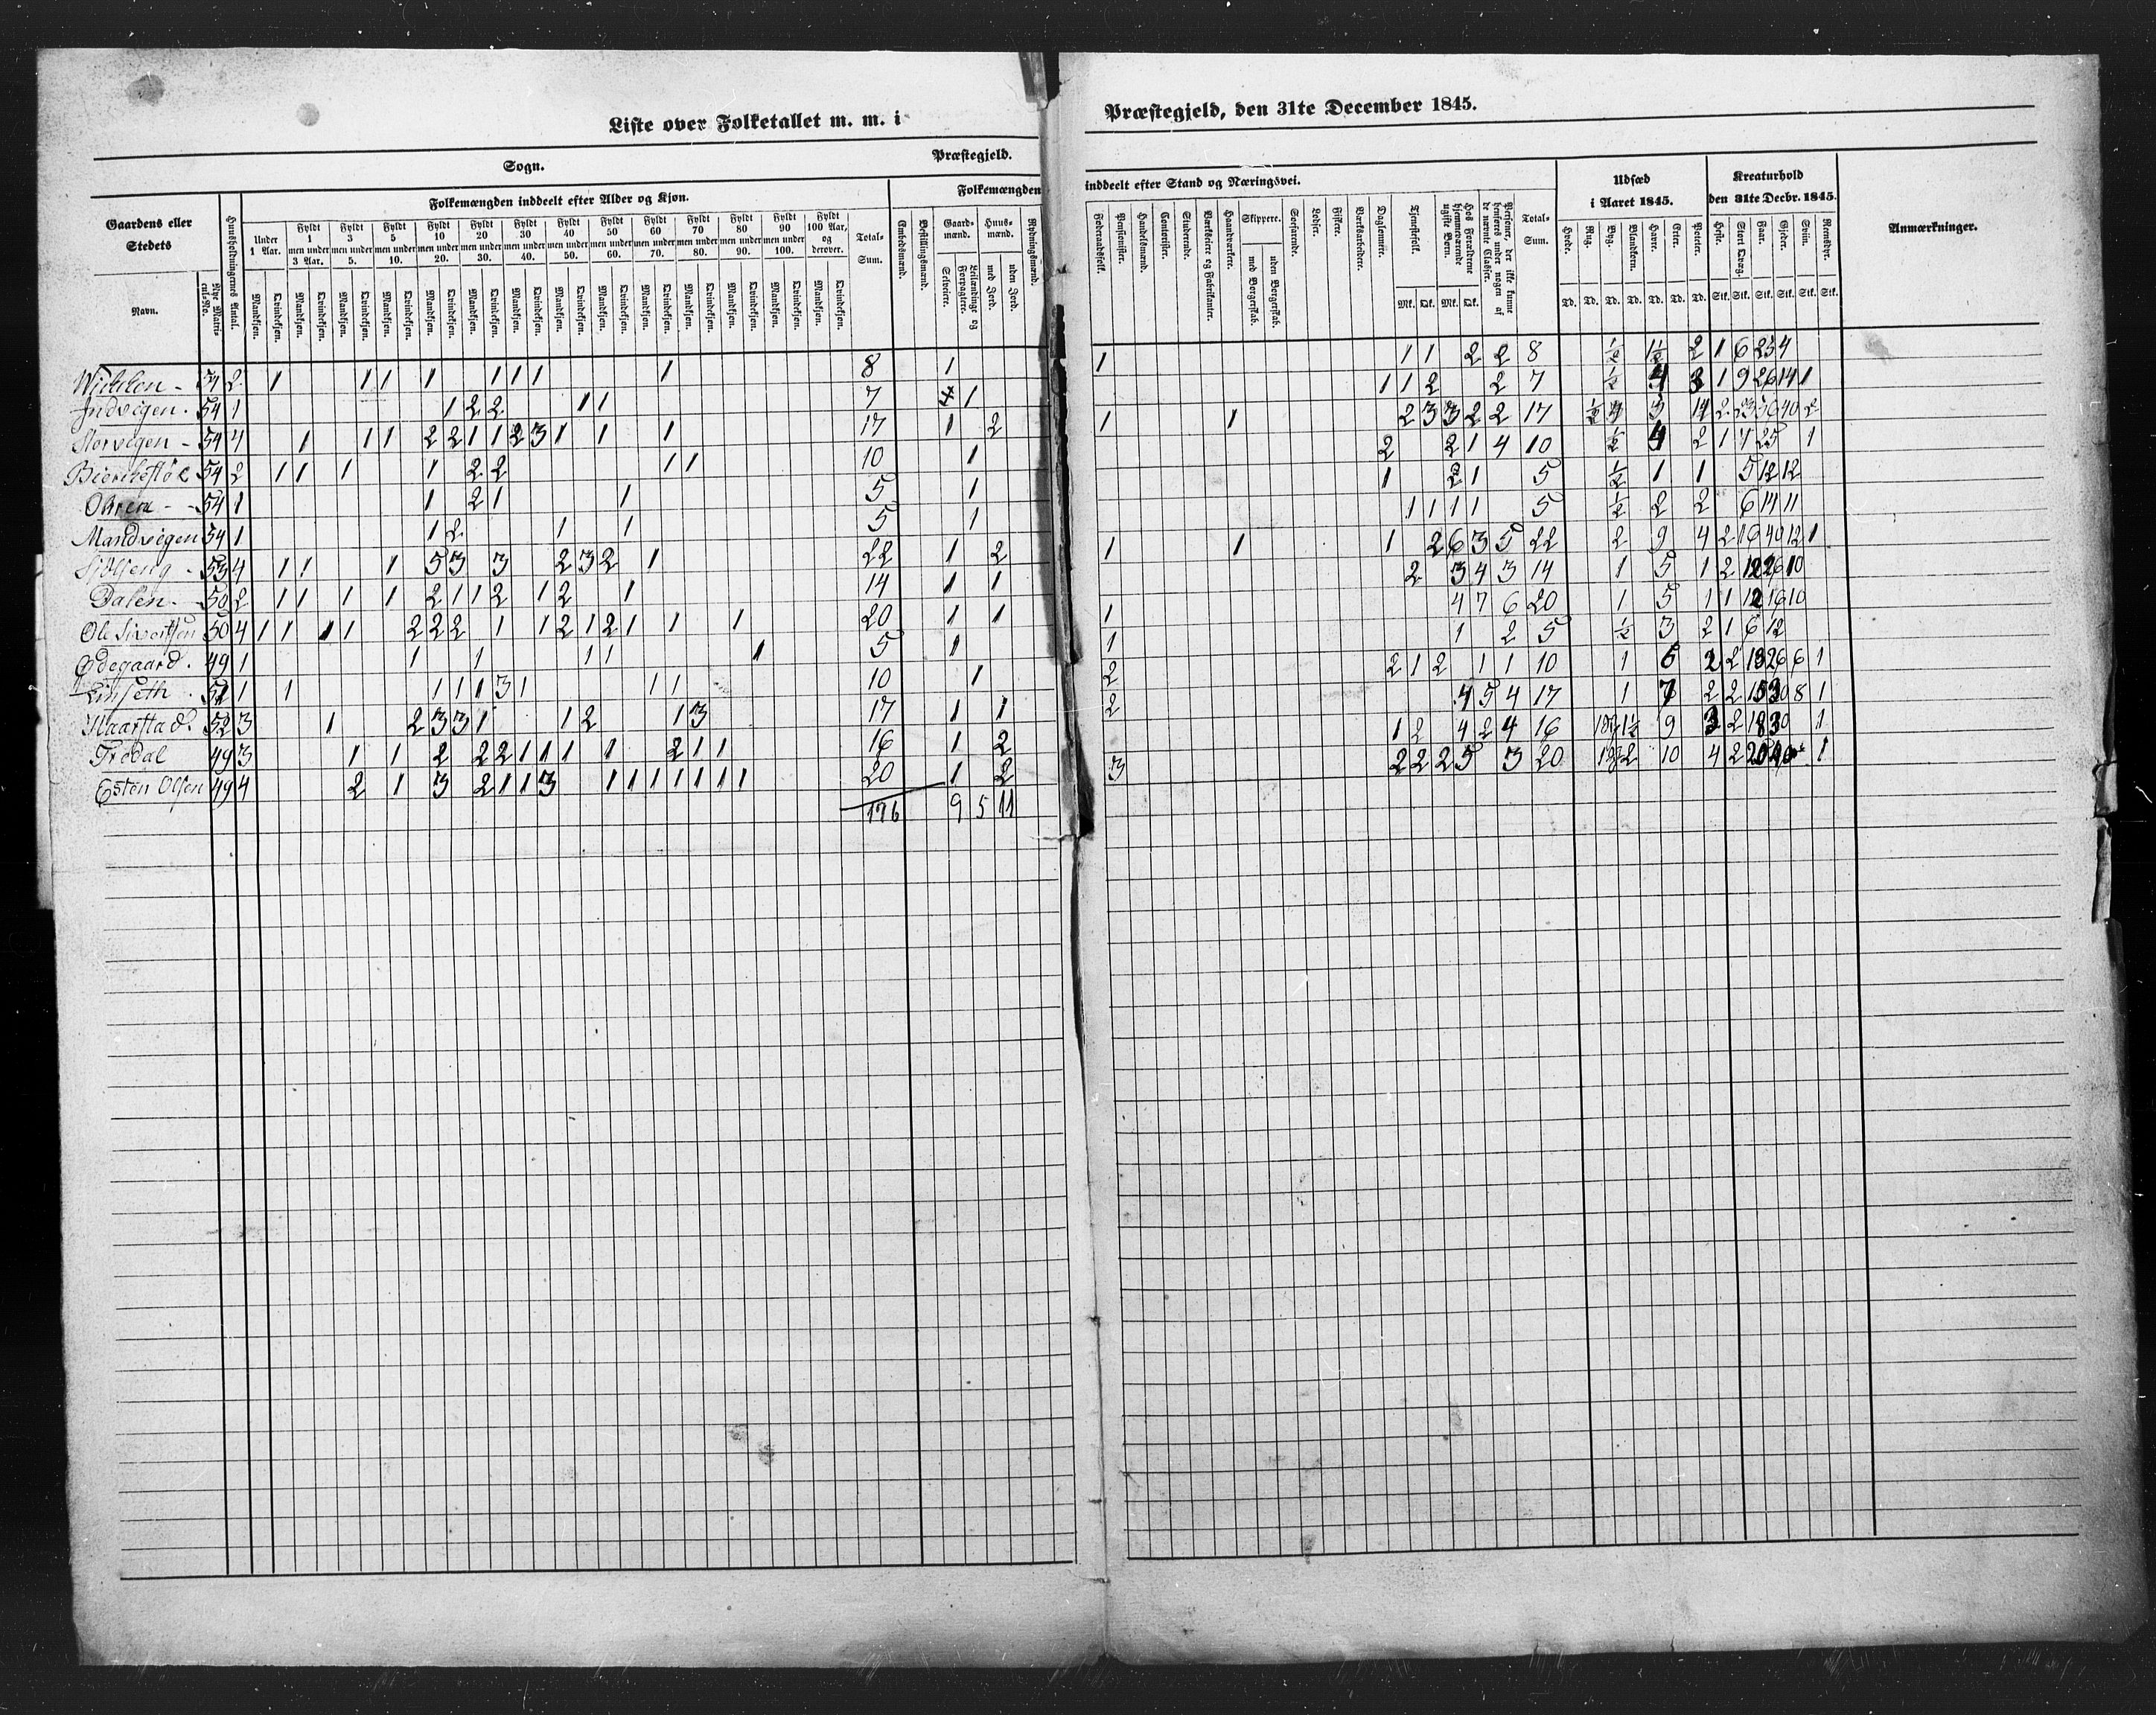 Liste over Folketallet m. m. i
Præstegjeld, den 31te December 1845.
Sogn.
Præstegjeld.
Gaardens eller Stedets
Navn.
Nye Matricul-No.
Huusholdningernes Antal.
Folkemængden inddeelt efter Alder og Kjøn.
Under 1 Aar.
Fyldt 1 men under 3 Aar.
Fyldt 3 men under 5.
Fyldt 5 men under 10.
Fyldt 10 men under 20.
Fyldt 20 men under 30.
Fyldt 30 men under 40.
Fyldt 40 men under 50.
Fyldt 50 men under 60.
Fyldt 60 men under 70.
Fyldt 70 men under 80.
Fyldt 80 men under 90.
Fyldt 90 men under 100.
Fyldt 100 Aar, og derover.
Mandkjøn. Qvindekjøn.
Total-Sum.
Folkemængden
inddeelt efter Stand og Næringsvei.
Embedsmænd.
Bestillingsmænd.
Gaardmænd.
Selveiere.
Leilændinge og Forpagtere.
Huusmænd.
med Jord.
uden Jord.
Rydningsmænd.
Føderaadsfolk.
Pensionister.
Handelsmænd.
Contorister.
Studerende.
Værkseiere og Fabrikanter.
Handværkere.
Skippere.
med Borgerskab.
uden Borgerskab.
Søefarende.
Lodser.
Fiskere.
Værksarbeidere.
Daglønnere.
Tjenestefolk.
Mk. Qk.
Hos Forældrene hjemmeværende ugifte Børn.
Mk. Qk.
Personer, der ikke kunne henføres under nogen af de nævnte Classer.
Total-Sum.
Udsæd i Aaret 1845.
Hvede. Rug. Byg. Blandkorn. Havre. Erter. Poteter.
Td. Td. Td. Td. Td. Td. Td.
Kreaturhold den 31te Decbr. 1845.
Heste. Stort Qvæg. Faar. Gjeder. Sviin. Rensdyr.
Stk. Stk. Stk. Stk. Stk. Stk.
Anmærkninger.
54 2 1 1 1 1 1 1 1 1 8 1 1 1 1 2 2 8 ½ 1½ 2 1 6 25 4
Indvigen. 54 1 1 2 2 1 1 7 1 1 1 2 2 7 ½ 4 3 1 9 26 14 1
Storvigen - 54 4 1 1 1 2 2 1 1 2 3 1 1 1 17 1 2 1 1 2 3 3 2 2 17
54 2 1 1 1 1 2 2 1 1 10 1 2 2 1 4 10 ½ 4 2 1 7 25 1
54 1 1 2 1 1 5 1 1 2 1 5 ½ 1 1 5 12 12
Mandvigen 54 1 1 2 1 1 5 1 1 1 1 1 5 ½ 2 2 6 14 11
53 4 1 1 1 5 3 3 2 3 2 1 22 1 2 1 1 1 2 6 3 5 22 2 9 4 2 16 40 12 1
Dalen. 50 2 1 1 1 1 2 1 1 2 1 2 1 14 1 1 2 3 4 3 14 1 5 1 2 12 26 10
Ole Sivertsen 50 4 1 1 1 1 2 2 2 1 1 2 1 2 1 1 1 20 1 1 1 4 7 6 20 1 5 1 1 12 16 10
Ødegaard. 49 1 1 1 1 1 1 5 1 1 1 2 5 ½ 3 2 1 6 12
1 1 1 1 1 3 1 1 1 10 1 2 2 1 2 1 1 10 1 2 2 6 1
Haarstad. 52 3 1 2 3 3 1 1 2 1 3 17 1 1 2 4 5 4 17 1 7 2 2 15 30 8 1
Trødal 49 3 1 1 2 2 2 1 1 1 1 2 1 1 16 1 2 1 2 4 2 4 16 9 3 2 18 30 1
Esten Olsen 49 4 2 1 3 2 1 1 3 1 1 1 1 1 1 1 20 1 2 3 2 2 2 5 3 20 10 4 2 1
176 9 5 11